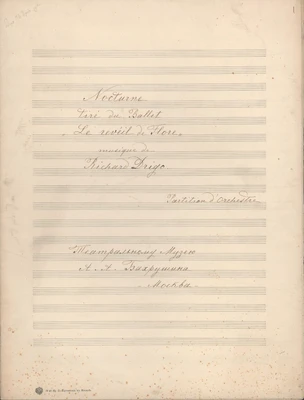 Nocturne
tiré du Ballet
"Le reveil de Flore"
musique de
Richard Drigo
Partition d'Orchestre
Театральному Музею
А. А. Бахрушина
Москва